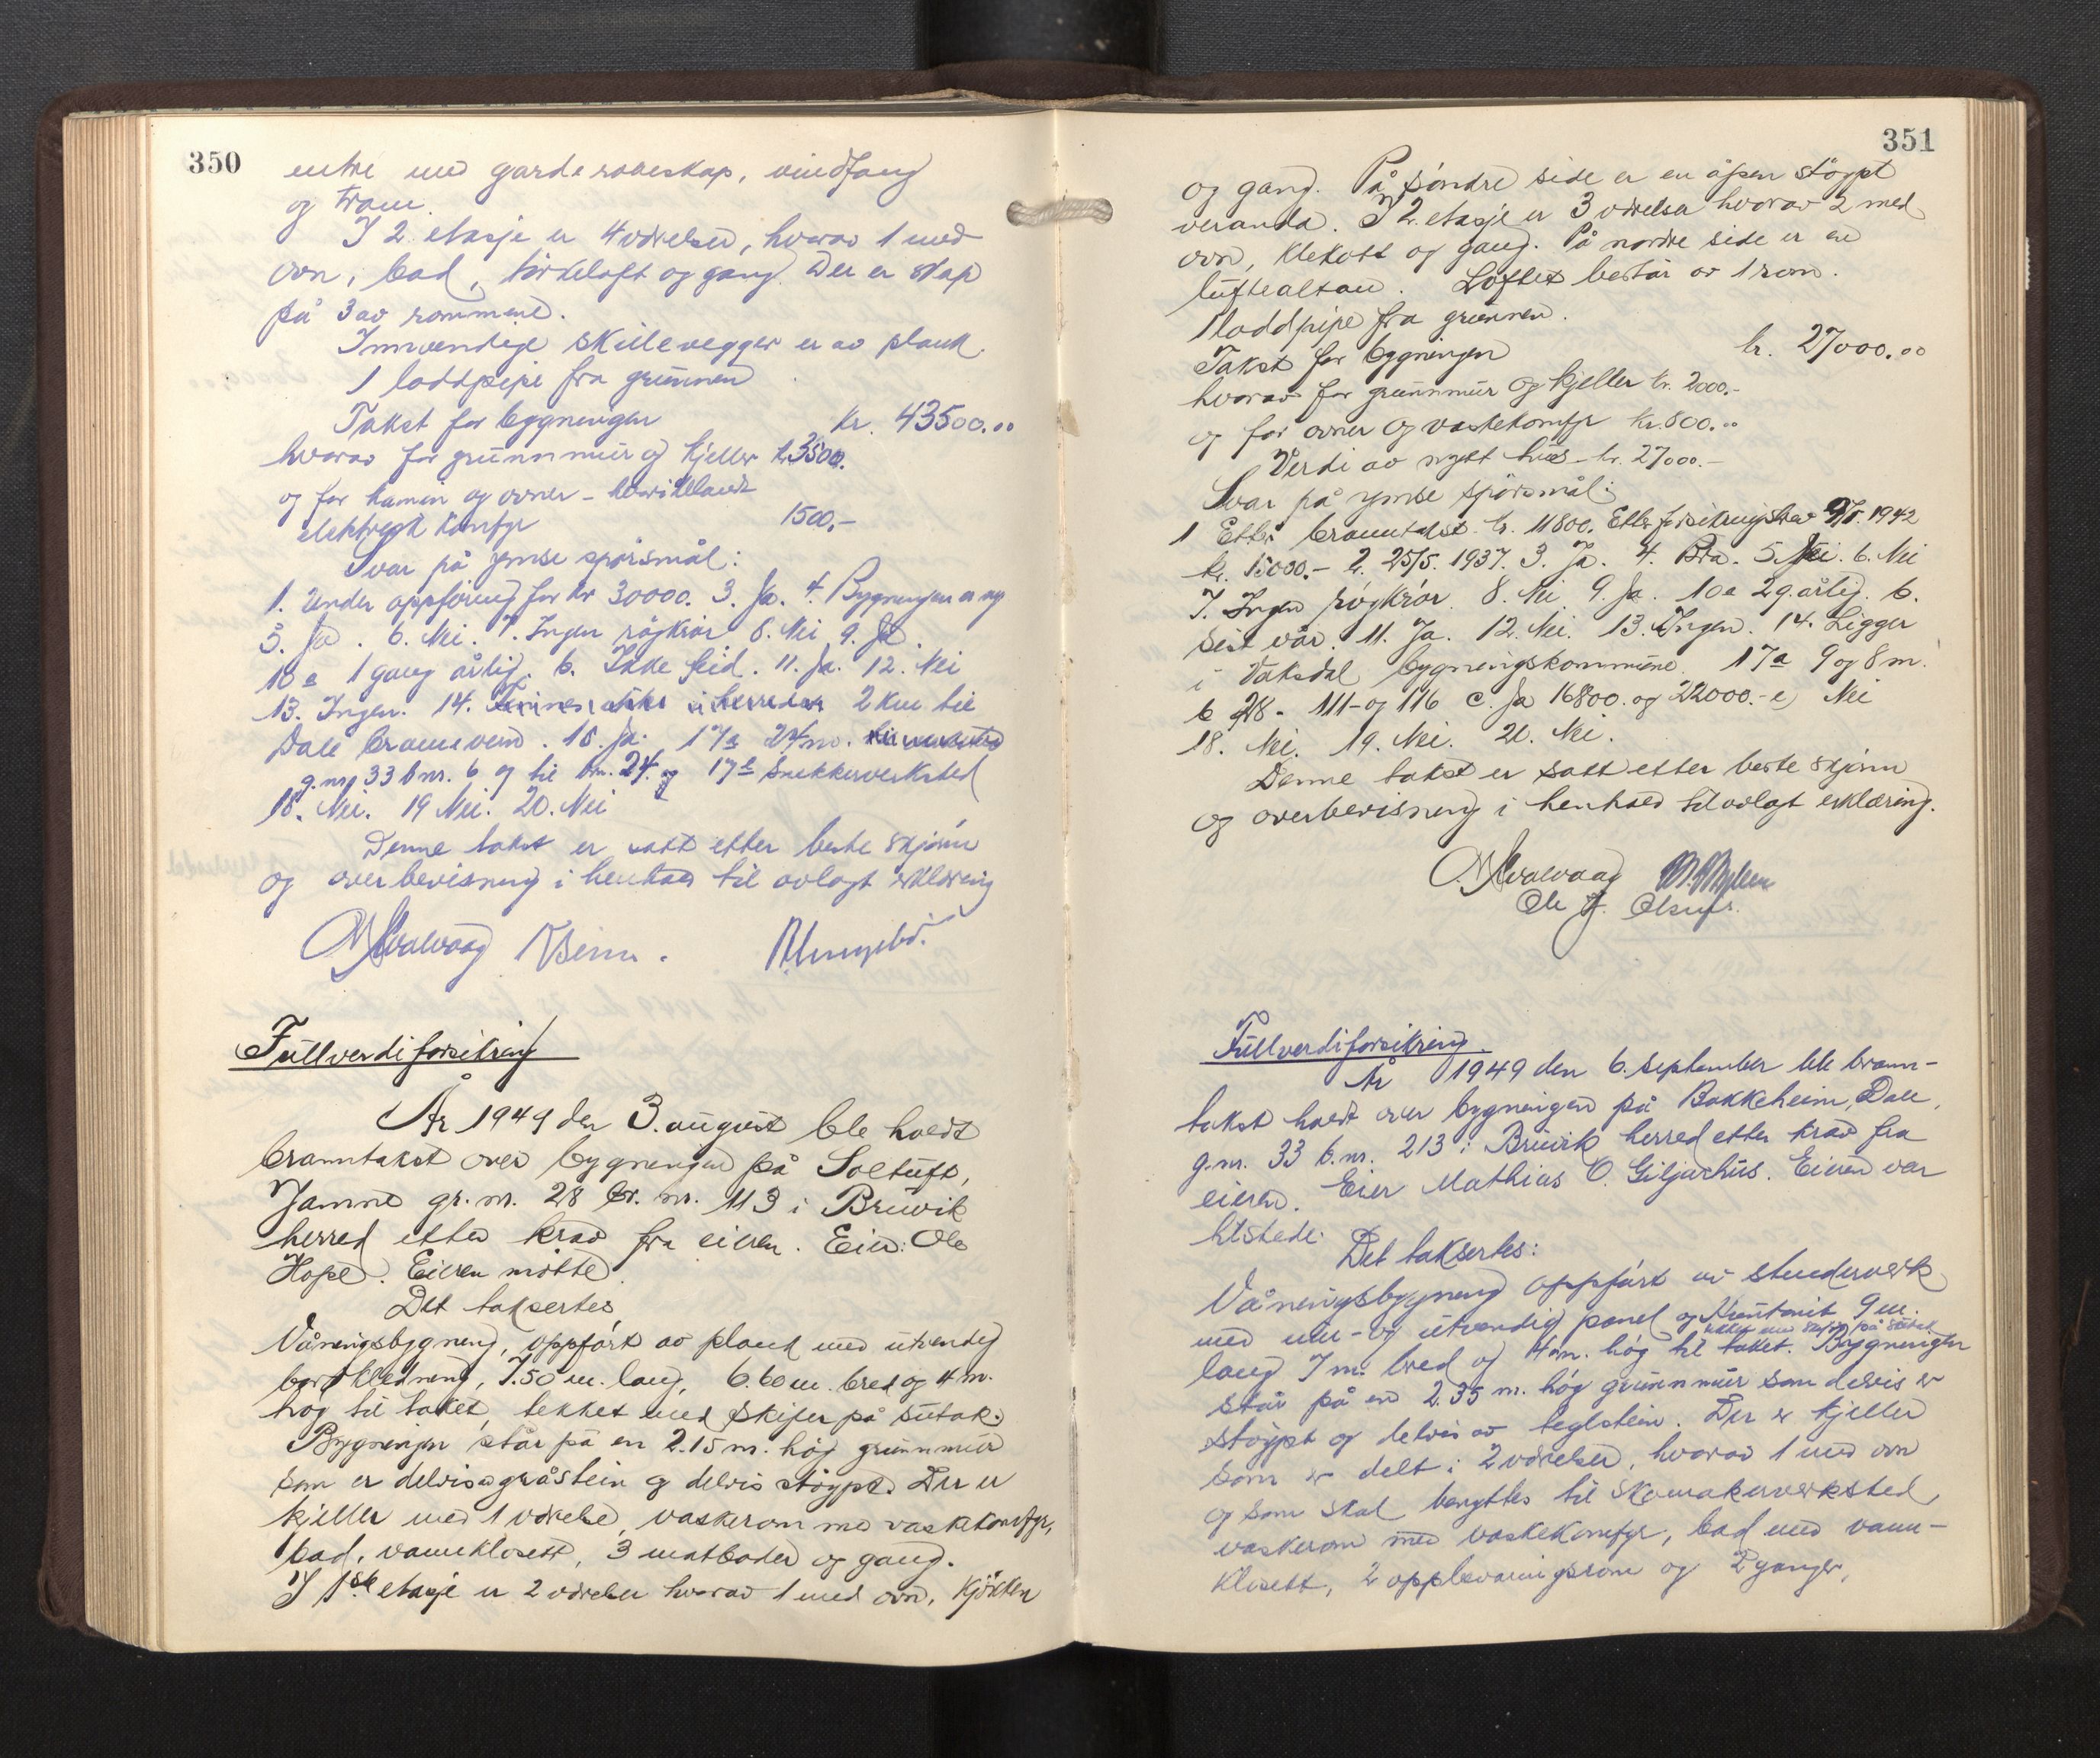 350
entré med garderobeskap, vindfang
og tram.
I 2. etasje er 4 værelser, hvorav 1 med
ovn, bad, tørkeloft og gang. Der er skap
på 3 av rommene.
Innvendige skillevegger er av plank.
1 loddpipe fra grunnen
Takst for bygningen kr. 43500.00
hvorav for grunnmur og kjeller kr. 3500.
og for kamin og ovner –
elektrisk komfyr 1500,-
Svar på ymse spørsmål:
1. Under oppføring for kr 30000. 3. Ja. 4. Bygningen er ny
5. Ja. 6. Nei. 7. Ingen røykrør 8. Nei. 9. Ja.
10 a 1 gang årlig. b. Ikke feid. 11. Ja. 12. Nei
13. Ingen. 14. 2 km til
Dale brannvern. 15. Ja. 17a 24 m.
g.nr. 33 b nr. 6 og til b.nr. 24. og 17 b Snekkerverksted
18. Nei. 19 Nei. 20. Nei
Denne takst er satt etter beste skjønn
og overbevisning i henhold til avlagt erklæring
Fullverdiforsikring
År 1949 den 3. august ble holdt
branntakst over bygningen på Soltuft,
Jamne gr. nr. 28 br. nr. 113 i Bruvik
herred etter krav fra eieren. Eier: Ole
Hope. Eieren møtte.
Det takseres
Våningsbygning, oppført av plank med utvendig
bordkledning, 7.50 m. lang, 6.60 m. bred og 4 m.
høg til taket, tekket med skifer på sutak.
Bygningen står på en 2.15 m. høg grunnmur
som er delvis av gråstein og delvis støypt. Der er
kjeller med 1 værelse, vaskerom med vaskekomfyr,
bad, vannklosett, 3 matboder og gang.
I 1ste etasje er 2 værelser hvorav 1 med ovn, kjøkken
351
og gang. På søndre side er en åpen støypt
veranda. I 2. etasje er 3 værelser hvorav 2 med
ovn, klekott og gang. På nordre side er en
luftealtan. Loftet består av 1 rom.
1 loddpipe fra grunnen.
Takst for bygningen kr. 27000.00
hvorav for grunnmur og kjeller kr. 2000.-
og for ovner og vaskekomfyr kr. 800.00
Verdi av nytt hus – kr. 27000.-
Svar på ymse spørsmål:
1 Etter branntakst kr. 11800. Etter forsikringsbrev 1942
kr. 15000.- 2. 25/5. 1937. 3. Ja. 4. Bra. 5. Nei. 6. Nei
7. Ingen røykrør. 8. Nei 9. Ja. 10 a 2 g. årlig. b.
Sist vår. 11. Ja. 12. Nei. 13. Ingen. 14. Ligger
i Vaksdal bygningskommune. 17a 9 og 8 m.
b 28 - 111 - og 116 c. Ja 16800. og 22000.- e) Nei
18. Nei. 19. Nei. 20. Nei.
Denne takst er satt etter beste skjønn
og overbevisning i henhold til avlagt erklæring.
Fullverdiforsikring.
År 1949 den 6. september ble brann-
takst holdt over bygningen på Bakkeheim, Dale,
g.nr. 33 b.nr. 213 i Bruvik herred etter krav fra
eieren. Eier Mathias O. Giljarhus. Eieren var
tilstede.
Det takseres:
Våningsbygning oppført av stenderverk
med inn- og utvendig panel og 9 m.
tekket med skifer på sutak
lang 7 m. bred og 4 m. høg til taket. Bygningen
står på en 2.35 m. høg grunnmur som delvis er
støypt og delvis av teglstein. Der er kjeller
som er delt i 2 værelser, hvorav 1 med ovn
og som skal benyttes til skomakerverksted,
vaskerom med vaskekomfyr, bad med vann-
klosett, 2 oppbevaringsrom og 2 ganger,